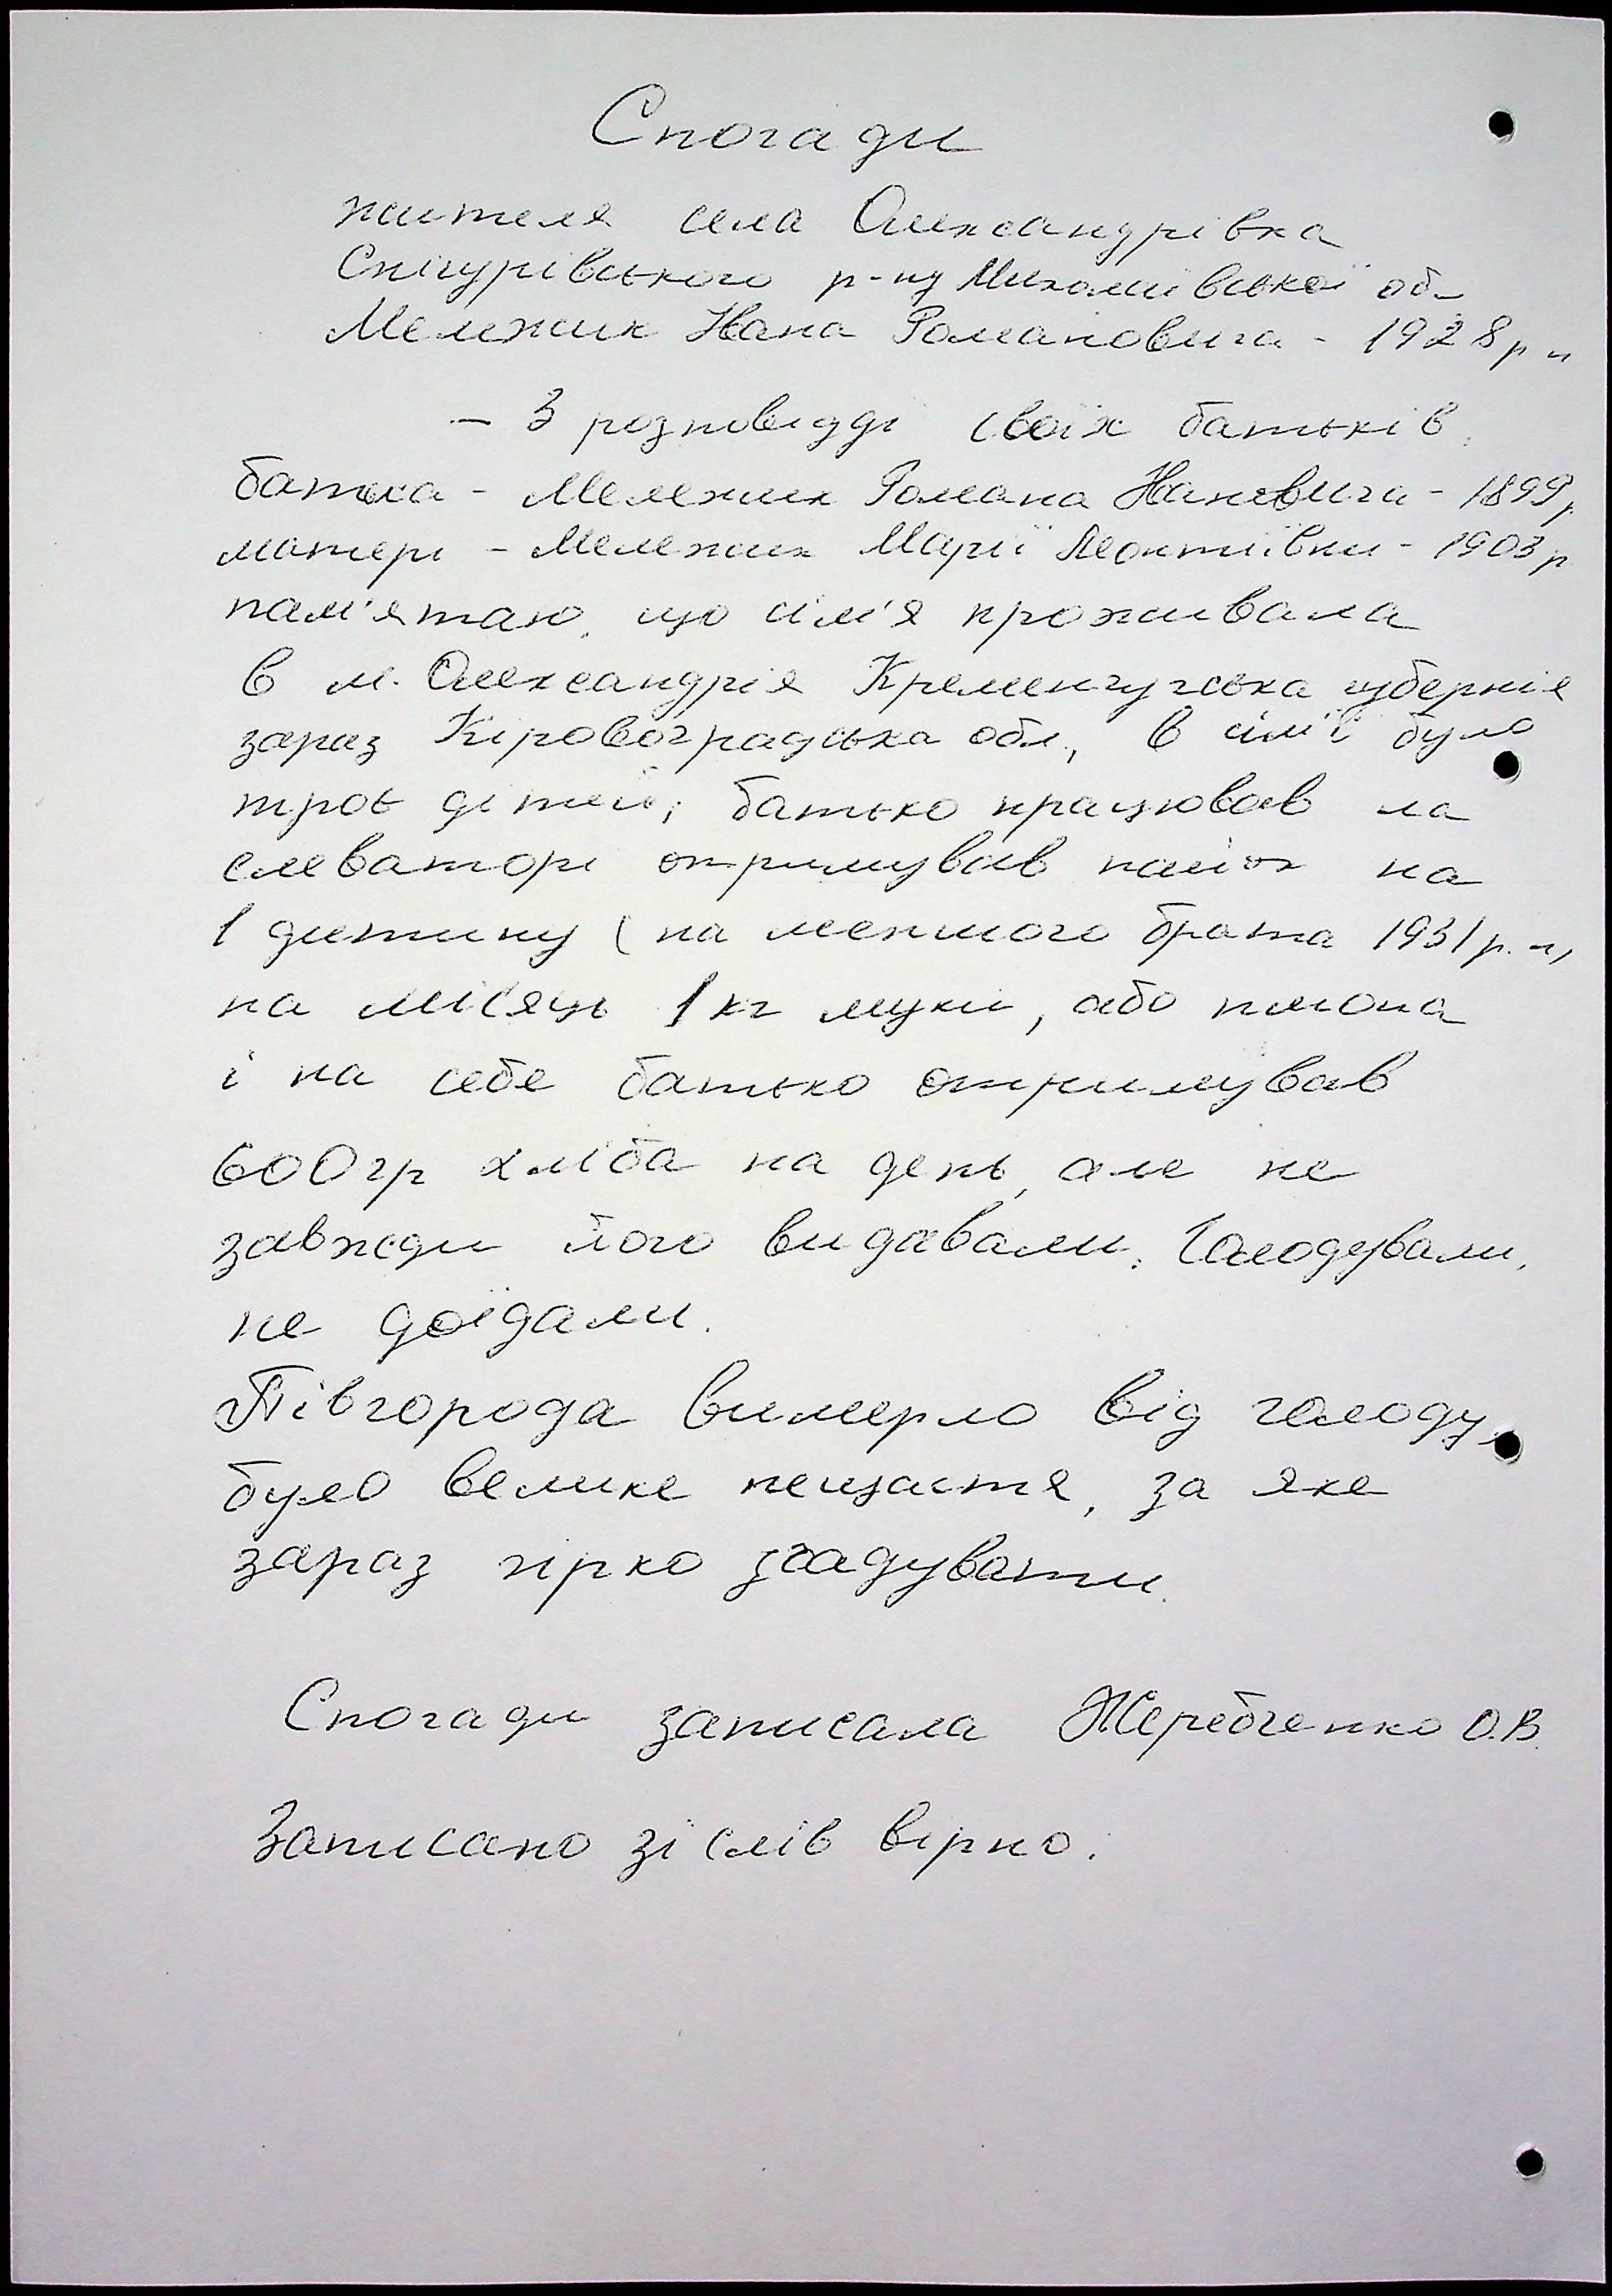 Спогади
жителя села Олександрівка
Снігурівського р-ну Миколаївської обл
Мележик Івана Романовича - 1928 р н
– З розповідді своїх батьків
батька - Мележик Романа Івановича - 1899 р
матері - Мележик Марії Леонтіївни - 1903 р
пам'ятаю, що сім'я проживала
в м. Олександрія Кременчугська губернія
зараз Кіровоградська обл., в сім'ї було
троє дітей; батько працював на
елеваторі отримував пайок на
1 дитину (на меншого брата 1931 р. н)
на місяць 1 кг муки, або пшона
і на себе батько отримував
600 гр хліба на день, але не
завжди його видавали. Голодували,
не доїдали.
Півгорода вимерло від голоду,
було велике нещастя, за яке
зараз гірко згадувати.
Спогади записала Жеребченко О.В.
Записано зі слів вірно.